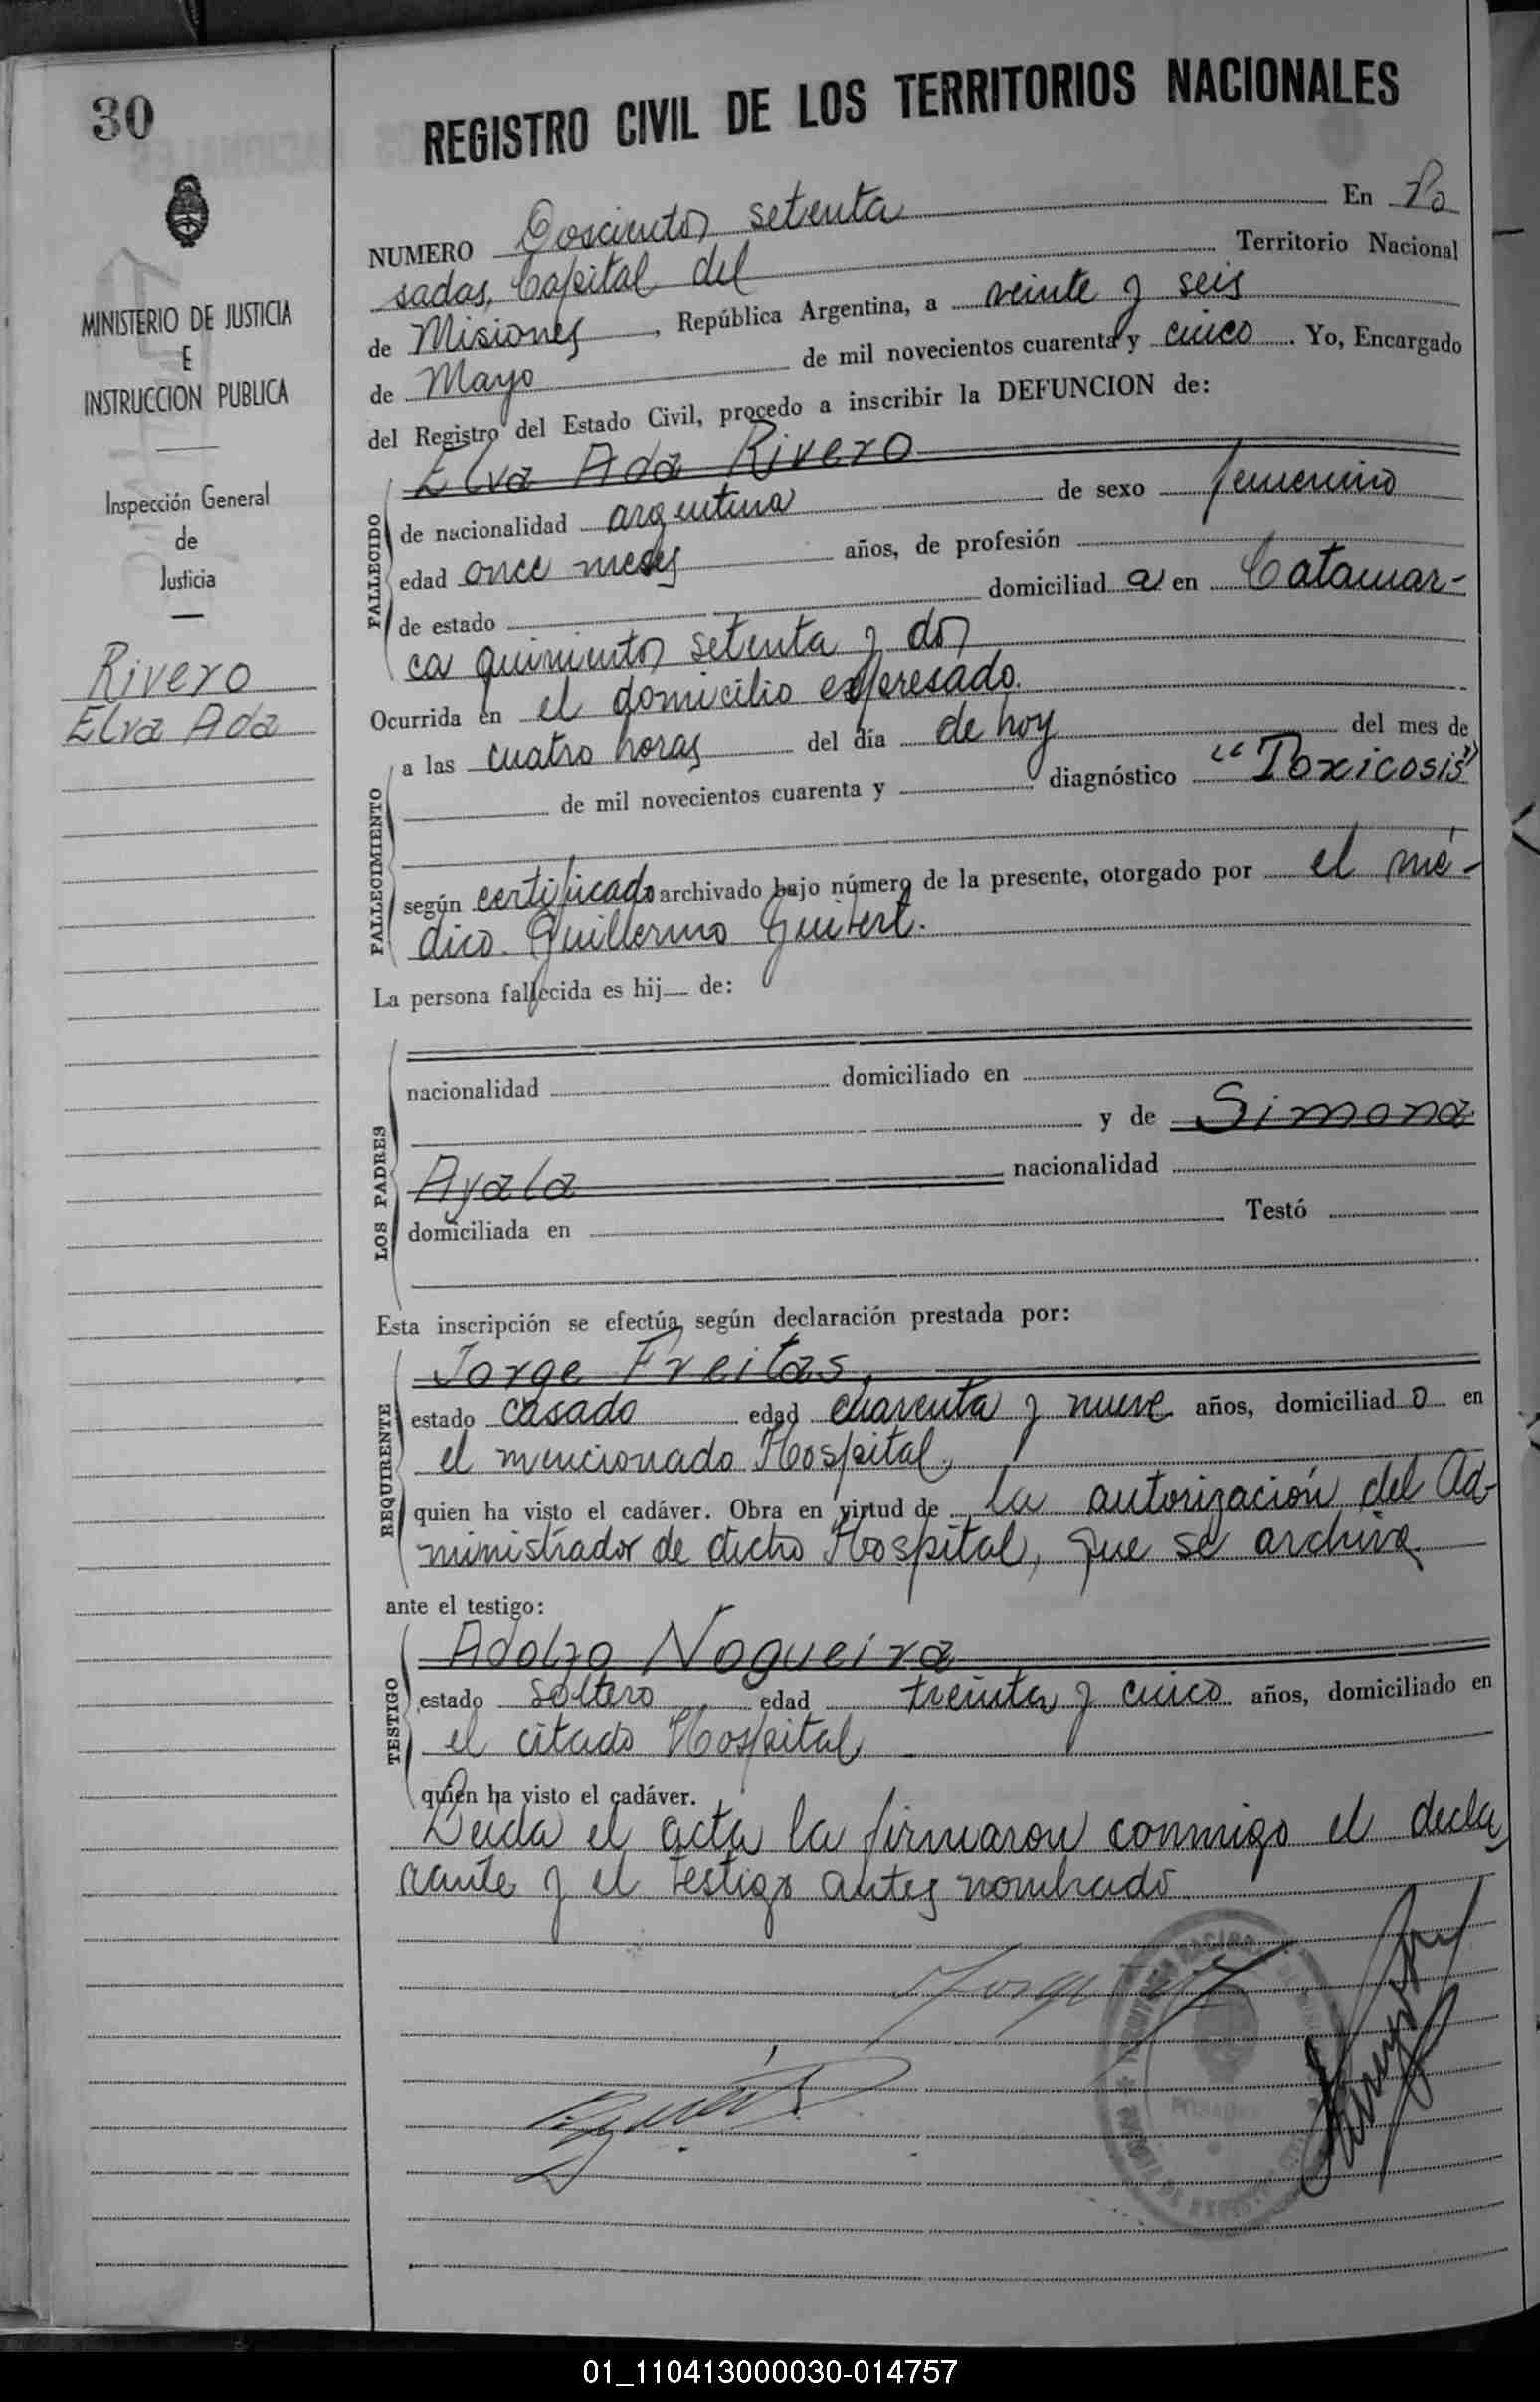 30
MINISTERIO DE JUSTICIA
E
INSTRUCCION PUBLICA
Inspección General
de
Justicia
Rivero
Elva Ada
REGISTRO CIVIL DE LOS TERRITORIOS NACIONALES
NUMERO Doscientos setenta En Po
sadas, Capital del Territorio Nacional
de Misiones, República Argentina, a veinte y seis
de Mayo de mil novecientos cuarenta y cinco. Yo, Encargado
del Registro del Estado Civil, procedo a inscribir la DEFUNCION de:
Elva Ada Rivero
FALLECIDO
de nacionalidad argentina de sexo femenino
edad once meses años, de profesión
de estado domiciliad a en Catamar-
ca quinientos setenta y dos
Ocurrida en el domicilio expresado.
FALLECIMIENTO
a las cuatro horas del día de hoy del mes de
de mil novecientos cuarenta y diagnóstico "Toxicosis"
según certificado archivado bajo número de la presente, otorgado por el mé-
dico. Guillermo Guibert.
La persona fallecida es hij de:
LOS PADRES
nacionalidad domiciliado en
y de Simona
Ayala nacionalidad
domiciliada en Testó
Esta inscripción se efectúa según declaración prestada por:
REQUIRENTE
Jorge Freitas,
estado casado edad cuarenta y nueve años, domiciliad o en
el mencionado Hospital,
quien ha visto el cadáver. Obra en virtud de la autorización del Ad-
ministrador de dicho Hospital, que se archiva
ante el testigo:
TESTIGO
Adolfo Nogueira
estado soltero edad treinta y cinco años, domiciliado en
el citado Hospital
quien ha visto el cadáver.
Leida el acta la firmaron conmigo el decla
rante y el testigo antes nombrado
01_110413000030-014757